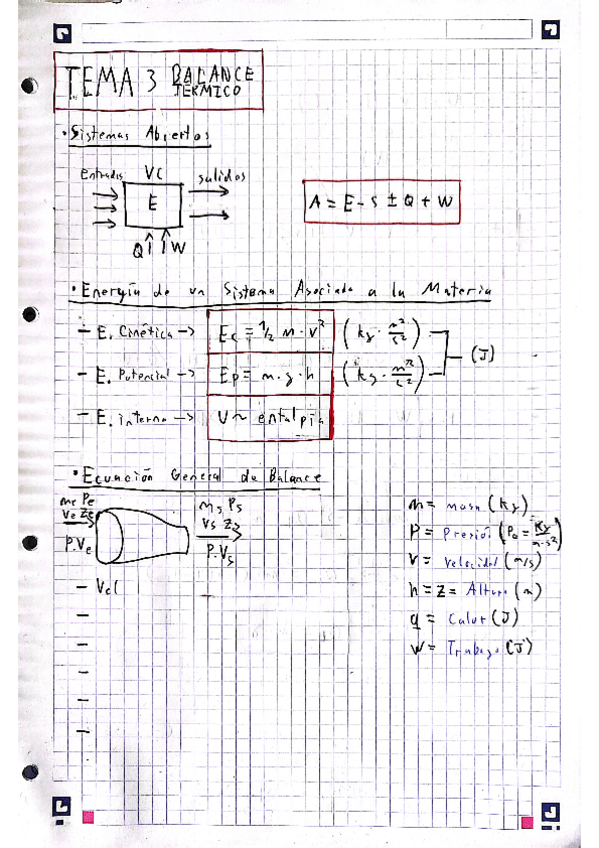 TEMA 3 BALANCE
TÉRMICO
• Sistemas Abiertos
Entradas VC salidas
E
Q W
A = E - S ± Q + W
• Energía de un Sistema Asociada a la Materia
- E. Cinética -> Ec = 1/2 m · v² (kg · m²/s²)
- E. Potencial -> Ep = m · g · h (kg · m²/s²)
(J)
- E. interna -> U ~ entalpía
• Ecuación General de Balance
me Pe
Ve Ze
P.Ve
ms Ps
Vs Zs
P.Vs
- Vel
-
-
-
-
-
m = masa (Kg)
P = Presión (Pa = Kg/m·s²)
v = velocidad (m/s)
h = z = Altura (m)
q = Calor (J)
w = Trabajo (J)